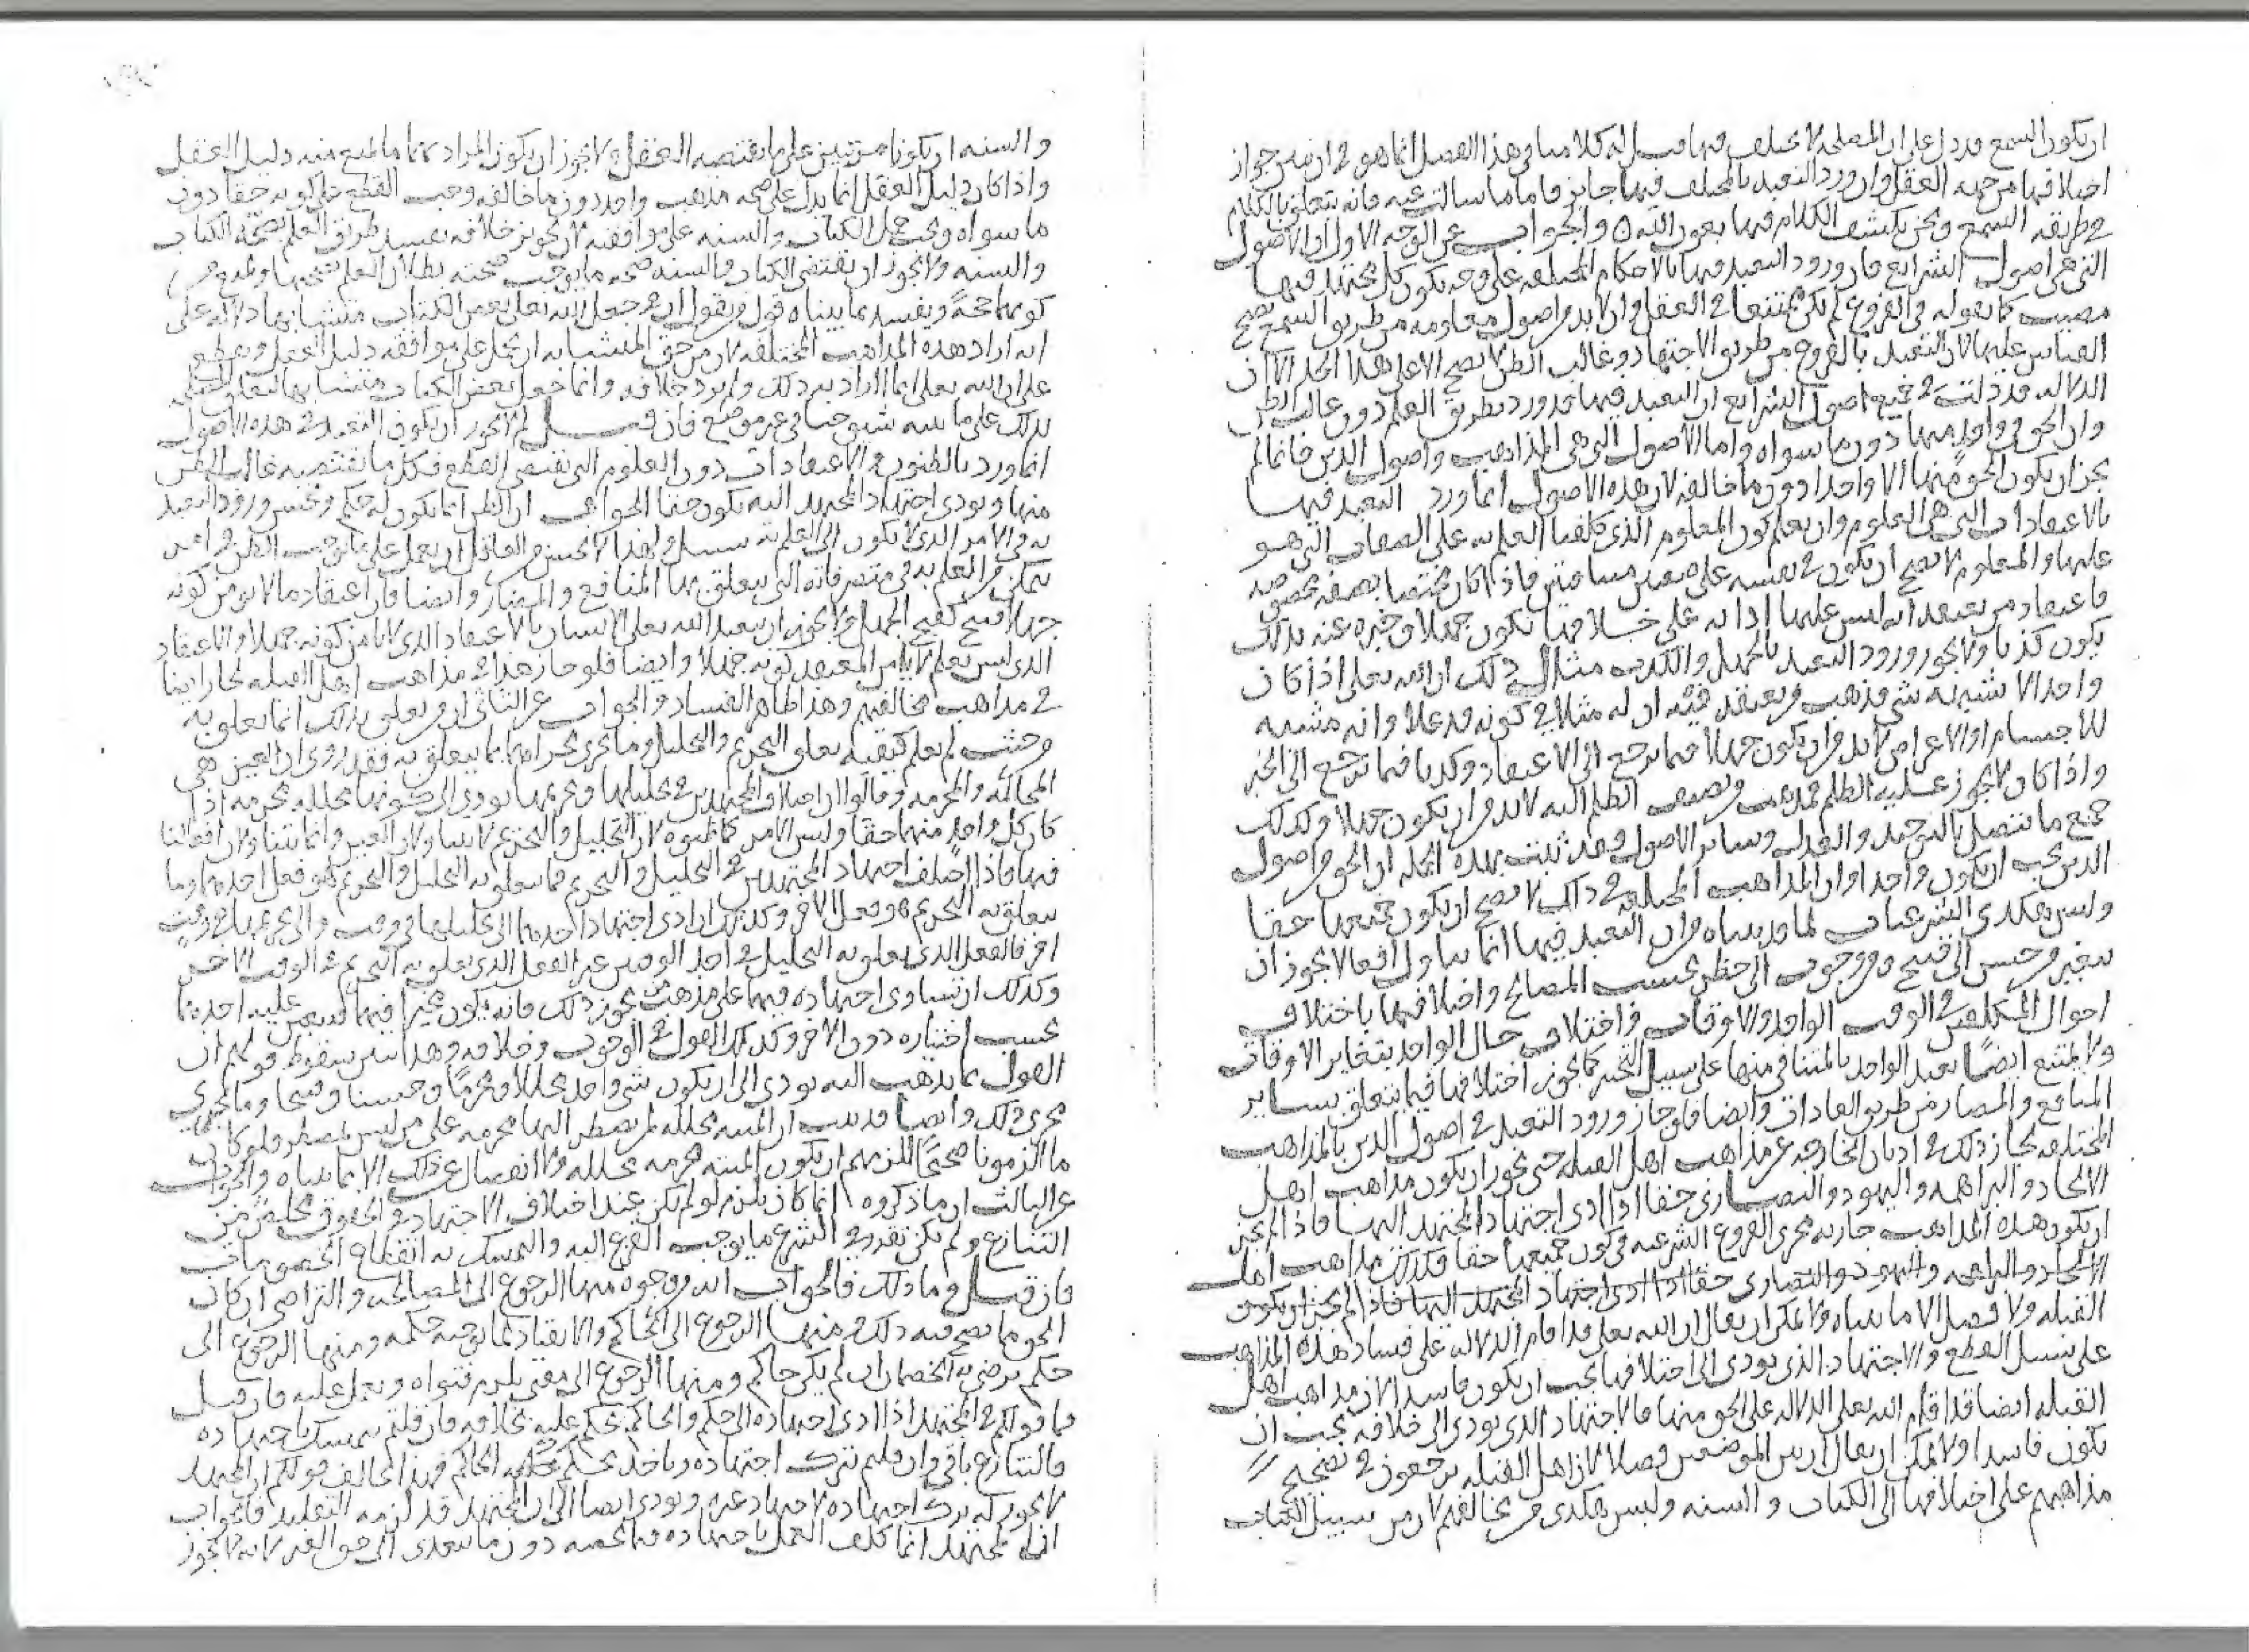 ان يكون السمع قد دل على ان المصلحه لا تختلف فيها قيل له كلامنا في هذا الفصل انما هو في ان نبين جواز
اختلافها من جهه العقل وان ورود التعبد بالمختلف فيها جايز فاما ما سالت عنه فانه يتعلق بالكلام
في طريقه السمع ونحن نكشف الكلام فيها بعون الله ه والجواب عن الوجه الاول ان الاصول
التي هي اصول الشرايع فان ورود التعبد فيها بالاحكام المختلفه على وجه يكون كل مجتهد فيها
مصيب كما نقوله في الفروع لم يكن ممتنعا في العقل وان لابد من اصول معلومه من طريق السمع يصح
القياس عليها لان التعبد بالفروع من طريق الاجتهاد وغالب الظن لا يصح الا على هذا الحد الا ان
الدلاله قد دلت في جميع اصول الشرايع ان التعبد فيها قد ورد بطريق العلم دون غالب الظن
وان الحق في واحد منها دون ما سواه واما الاصول التي هي المذاهب واصول الدين فانما لم
يجز ان يكون الحق منها الا واحدا دون ما خالفه لان هذه الاصول انما ورد التعبد فيها
بالاعتقادات التي هي العلوم وان يعلم كون المعلوم الذي كلفنا العلم به على الصفات التي هو
عليها والمعلوم لا يصح ان يكون في نفسه على صفتين متنافيتين فاذا كان مختصا بصفه مخصوصه
فاعتقاد من يعتقد انه ليس عليها او انه على خلافها يكون جهلا وخبره عنه بذلك
يكون كذبا ولا يجوز ورود التعبد بالجهل والكذب مثال ذلك ان الله تعالى اذا كان
واحدا لا شبه به شي فمذهب من يعتقد فيه ان له مثلا في كونه وانه مشبه
للاجسام او الاعراض لابد من ان يكون جهلا فيما يرجع الى الاعتقاد وكذبا فيما يرجع الى الخبر
واذا كان لا يجوز عليه الظلم فمذهب من يضيف الظلم اليه لابد من ان يكون جهلا وكذلك
جميع ما يتصل بالتوحيد والعدل وساير الاصول وقد ثبت بهذه الجمله ان الحق من اصول
الدين يجب ان يكون واحدا وان المذاهب المختلفه في ذلك لا يصح ان يكون جميعها حقا
وليس هكذى الشرعيات لما قد بيناه من ان التعبد فيها انما يتناول افعالا يجوز ان
يتغير من حسن الى قبح ومن وجوب الى حظر بحسب المصالح واختلافها باختلاف
احوال المكلفين في الوقت الواحد والاوقات واختلاف حال الواحد بتغاير الاوقات
ولا يمتنع ايضًا تعبد الواحد بالمتنافي منها على سبيل التخير كما يجوز اختلافها فيما يتعلق بساير
المنافع والمضار من طريق العادات وايضا فلو جاز ورود التعبد في اصول الدين بالمذاهب
المختلفه لجاز ذلك في اديان الخارجه عن مذاهب اهل القبله حتى يجوز ان يكون مذاهب اهل
الالحاد والبراهمه واليهود والنصارى حقا اذا ادى اجتهاد المجتهد اليها فاذا لم يجز
ان يكون هذه المذاهب جاريه مجرى الفروع الشرعيه في كون جميعها حقا فكذلك مذاهب اهل
الالحاد والبراهمه واليهود والنصارى حقا اذا ادى اجتهاد المجتهد اليها فاذا لم يجز ان يكون
القبله ولا فصل الا ما بيناه ولا يمكن ان يقال ان الله تعالى قد اقام الدلاله على فساد هذه المذاهب
على سبيل القطع والاجتهاد الذي يودى الى اختلافها يجب ان يكون فاسدا لان مذاهب اهل
القبله ايضا قد اقام الله تعالى الدلاله على الحق منها فالاجتهاد الذي يودى الى خلافه يجب ان
يكون فاسدا ولا يمكن ان يقال ان بين الموضعين فصلا لان اهل القبله يرجعون في تصحيح
مذاهبهم على اختلافها الى الكتاب والسنه وليس هكذى من يخالفهم لان من سبيل الكتاب
والسنه ان يكونا مرتبين على ما يقتضيه العقل ولا يجوز ان يكون المراد بهما ما يمنع منه دليل العقل
واذا كان دليل العقل انما يدل على صحه مذهب واحد دون ما خالفه وجب القطع على كونه حقا دون
ما سواه ويجب حمل الكتاب والسنه على موافقته لان تجويز خلافه يفسد طريق العلم بصحه الكتاب
والسنه ولا يجوز ان يقتضي الكتاب والسنه صحه ما يوجب صحته بطلان العلم بصحتها
كونهما حجةً ويفسد بما بيناه قول من يقول ان من جعل الله تعالى بعض الكتاب متشابها دلاله على
انه اراد هذه المذاهب المختلفه لان من حق المتشابه ان يحمل على موافقه دليل العقل ويقطع
على ان الله تعالى انما اراد به ذلك ولم يرد خلافه وانما جعل بعض الكتاب متشابها
لذلك على ما بينه شيوخنا في غير موضع فان قيل لم لا يجوز ان يكون التعبد في هذه الاصول
انما ورد بالظنون والاعتقادات دون العلوم التي تقتضي القطع فكل ما يقتضيه غالب الظن
منها ويودى اجتهاد المجتهد اليه يكون حقا الجواب ان الظن انما يكون له حكم ويحسن ورود التعبد
به في الامر الذي لا يكون الى العلم به سبيل ولهذا لا يحسن من العاقل ان يعمل على ما يوجب الظن من امر
يتمكن من العلم به في متصرفاته التي يتعلق بها المنافع والمضار وايضا فان اعتقاد ما لا يومن كونه
جهلا قبيح كقبح الجهل ولا يجوز ان يتعبد الله تعالى الانسان بالاعتقاد الذي لا يامن كونه جهلا والاعتقاد
الذي ليس بعلم لا يامن المعتقد كونه جهلا وايضا فلو جاز هذا في مذاهب اهل القبله لجاز ايضا
في مذاهب مخالفيهم وهذا ظاهر الفساد والجواب عن الثاني ان من يتعلق بذلك انما يتعلق به
من حيث لم يعلم كيفيه تعلق التحريم والتحليل وما يجري مجراهما بما يتعلق به فقدر روى ان العين هي
المحلله والمحرمه وقالوا ان اختلاف المجتهدين في تحليلها وتحريمها يودي الى كونها محلله محرمه اذا
كان كل واحد منها حقا وليس الامر كما ظنوه لان التحليل والتحريم لا يتناولان العين وانما يتناولان افعالنا
فيها فاذا اختلف اجتهاد المجتهدين في التحليل والتحريم فما يتعلق به التحليل والتحريم هو فعل احدهما وما
يتعلق به التحريم هو فعل الاخر وكذلك اذا ادى اجتهاد احدهما الى تحليلها في وقت والى تحريمها في وقت
اخر فالفعل الذي يتعلق به التحليل في احد الوقتين غير الفعل الذي يتعلق به التحريم في الوقت الاخر
وكذلك ان تساوى اجتهاده فيهما على مذهب من يجوز ذلك فانه يكون مخيرا فيهما عليه احدهما
بحسب اختياره دون الاخر وكذلك القول في الوجوب وخلافه وهذا يبين سقوط قولهم ان
القول بما يذهب اليه يودى الى ان يكون شي واحد محللا ومحرمًا وحسنا وقبيحا وما يجري
مجرى ذلك وايضا قد ثبت ان الميته محلله لمن يضطر اليها محرمه على من ليس بمضطر فلو كان
ما الزموناه صحيحًا للزمهم ان يكون الميته محرمه محلله ولا انفصال عن ذلك الا بما بيناه والجواب
عن الثالث ان ما ذكروه انما كان يلزم لو لم يكن عند اختلاف الاجتهاد في الحقوق مخلص من
التنازع ولم يكن تقدر في الشرع ما يوجب الفزع اليه والتمسك به انقطاع الخصومات
فان قيل وما ذلك فالجواب انه وجوه منها الرجوع الى المصالحه والتراضى ان كان
الحق مما يصح فيه ذلك ومنها الرجوع الى الحاكم والانقياد لما يوجبه حكمه ومنها الرجوع الى
حكم يرضى به الخصمان ان لم يكن حاكم ومنها الرجوع الى مفتي يلزم فتواه ويعمل عليه فان قيل
فما قولكم في المجتهد اذا ادى اجتهاده الى حكم والحاكم يحكم عليه بخلافه فان قلتم يتمسك باجتهاده
فالتنازع باقي وان قلتم يترك اجتهاده وياخذ بحكم الحاكم فهذا يخالف قولكم ان المجتهد
لا يجوز له ترك اجتهاده لاجتهاد غيره ويودى ايضا الى ان المجتهد قد لزمه التقليد فالجواب
ان المجتهد انما كلف العمل باجتهاده فيما يخصه دون ما يتعدى الى حق الغير لانه لا يجوز